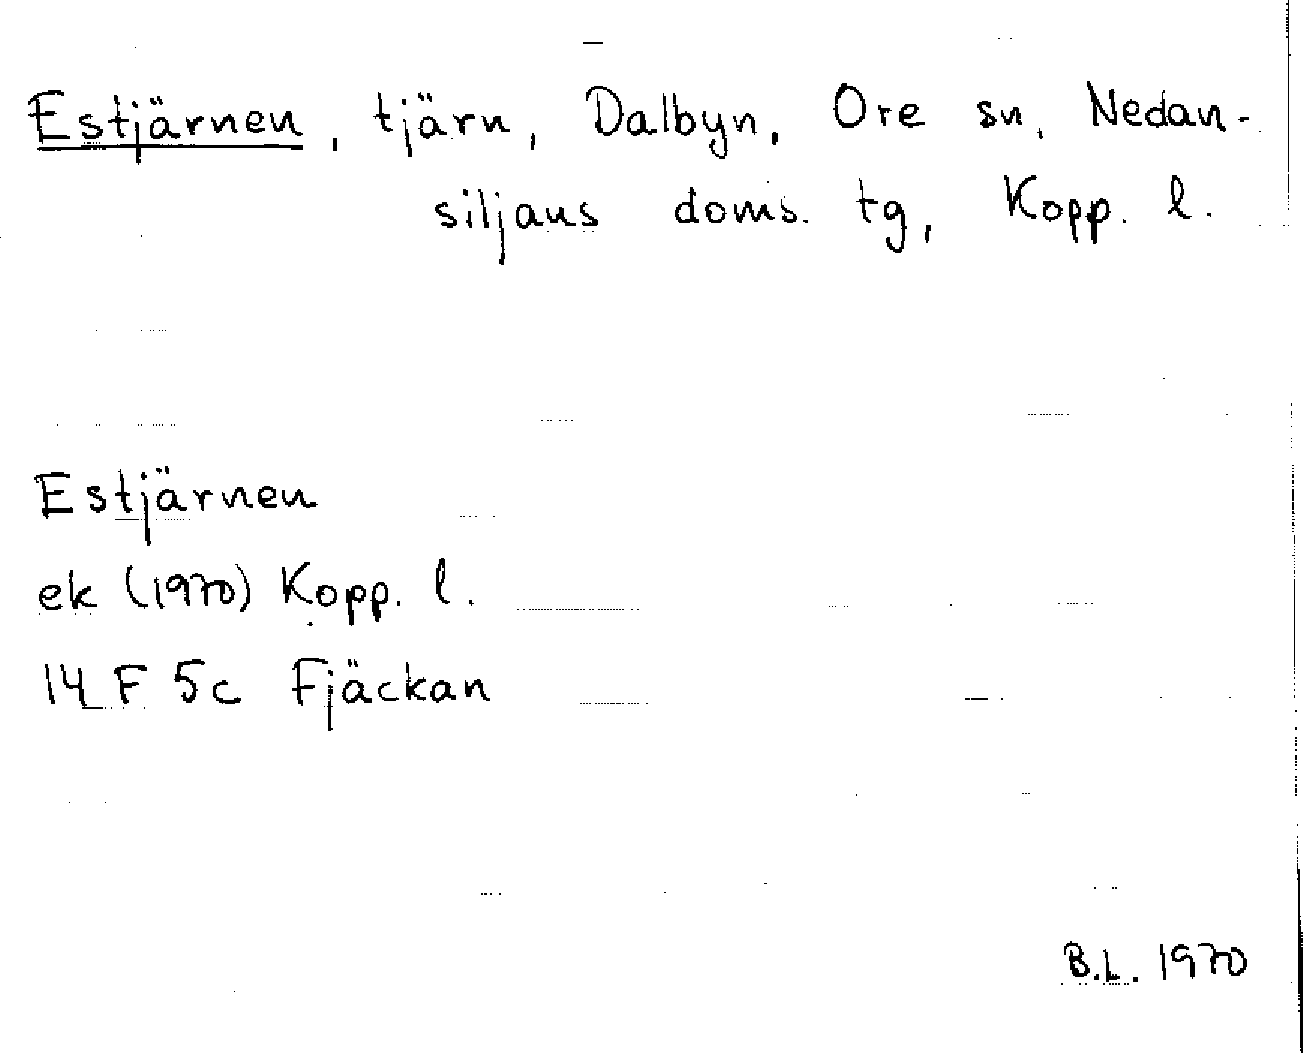 Estjärnen, tjärn, Dalbyn, Ore sn, Nedan-
siljans doms. tg, Kopp. l.
Estjärnen
ek (1970) Kopp. l.
14 F 5c Fjäckan
B.L. 1970